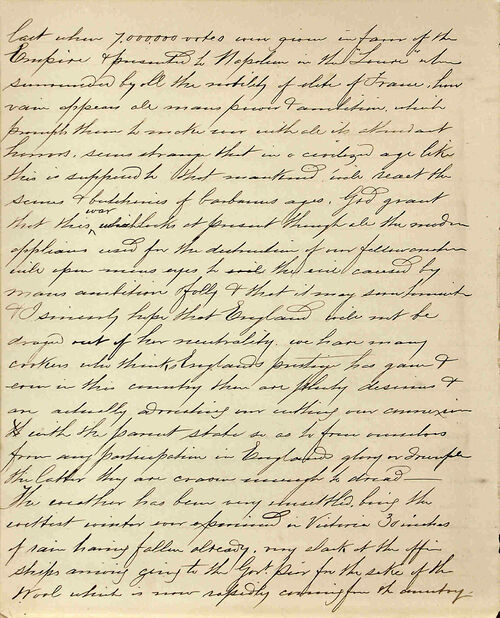 last when 7,000,000 votes were given in favor of the
Empire & presented to Napoleon in the Louvre when
surrounded by all the nobility & elite of France, how
vain appears all mans power & ambition, which
prompts them to make war with all its attendant
horrors, seems strange that in a civilized age like
this is supposed to that mankind will react the
scenes & butcheries of barbarous ages. God grant
that this war which at present though all the modern
appliances used for the destruction of our fellow
will open mens eyes to the evil caused by
mans ambition folly & that it may soon
& I sincerely hope that England will not be
draged out of her neutrality. we have many
croakers who think Englands prestige has gone &
even in this country there are plenty desirous &
are actually advocating our cutting our connexion
with the parent state so as to free ourselves
from any participation in Englands glory or
the latter they are craven enough to dread —
The weather has been very unsettled, being the
wettest winter ever experienced in Victoria 30 inches
of rain having fallen already. very slack at the office
ships arriving going to the Govt. Pier for the sake of the
Wool which is now rapidly coming from the country.